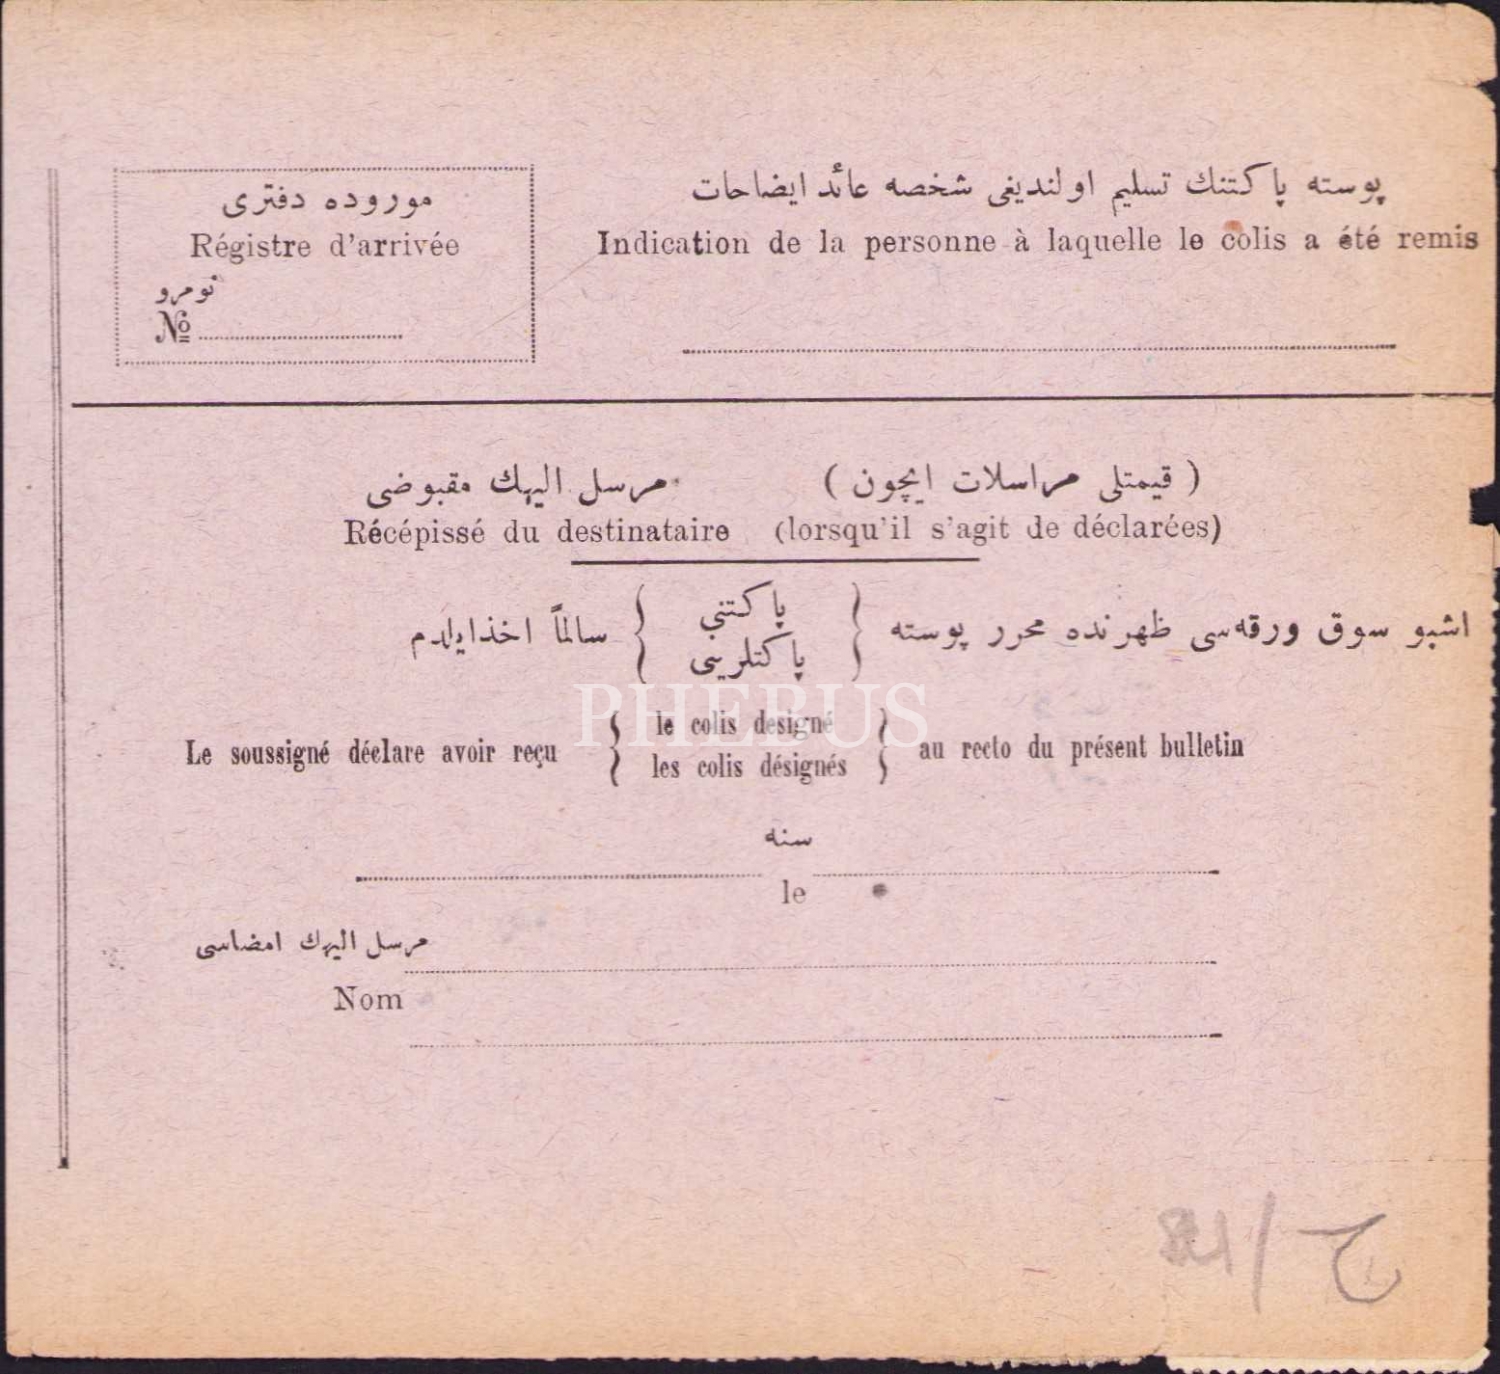 موروده دفترى
Régistre d'arrivée
نومرو
№
پوسته پاكتنك تسليم اولنديغى شخصه عائد ايضاحات
Indication de la personne à laquelle le colis a été remis
مرسل اليهك مقبوضى ( قيمتلى مراسلات ايچون )
Récépissé du destinataire (lorsqu'il s'agit de déclarées)
اشبو سوق ورقه‌سى ظهرنده محرر پوسته { پاكتنى پاكتلرينى } سالماً اخذ ايلدم
Le soussigné déclare avoir reçu { le colis designé les colis désignés } au recto du présent bulletin
PHEBUS
سنه
le
مرسل اليهك امضاسى
Nom